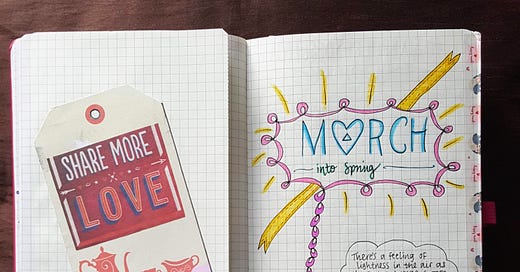 SHARE MORE
LOVE
MARCH
into Spring
There's a feeling of
lightness in the air as